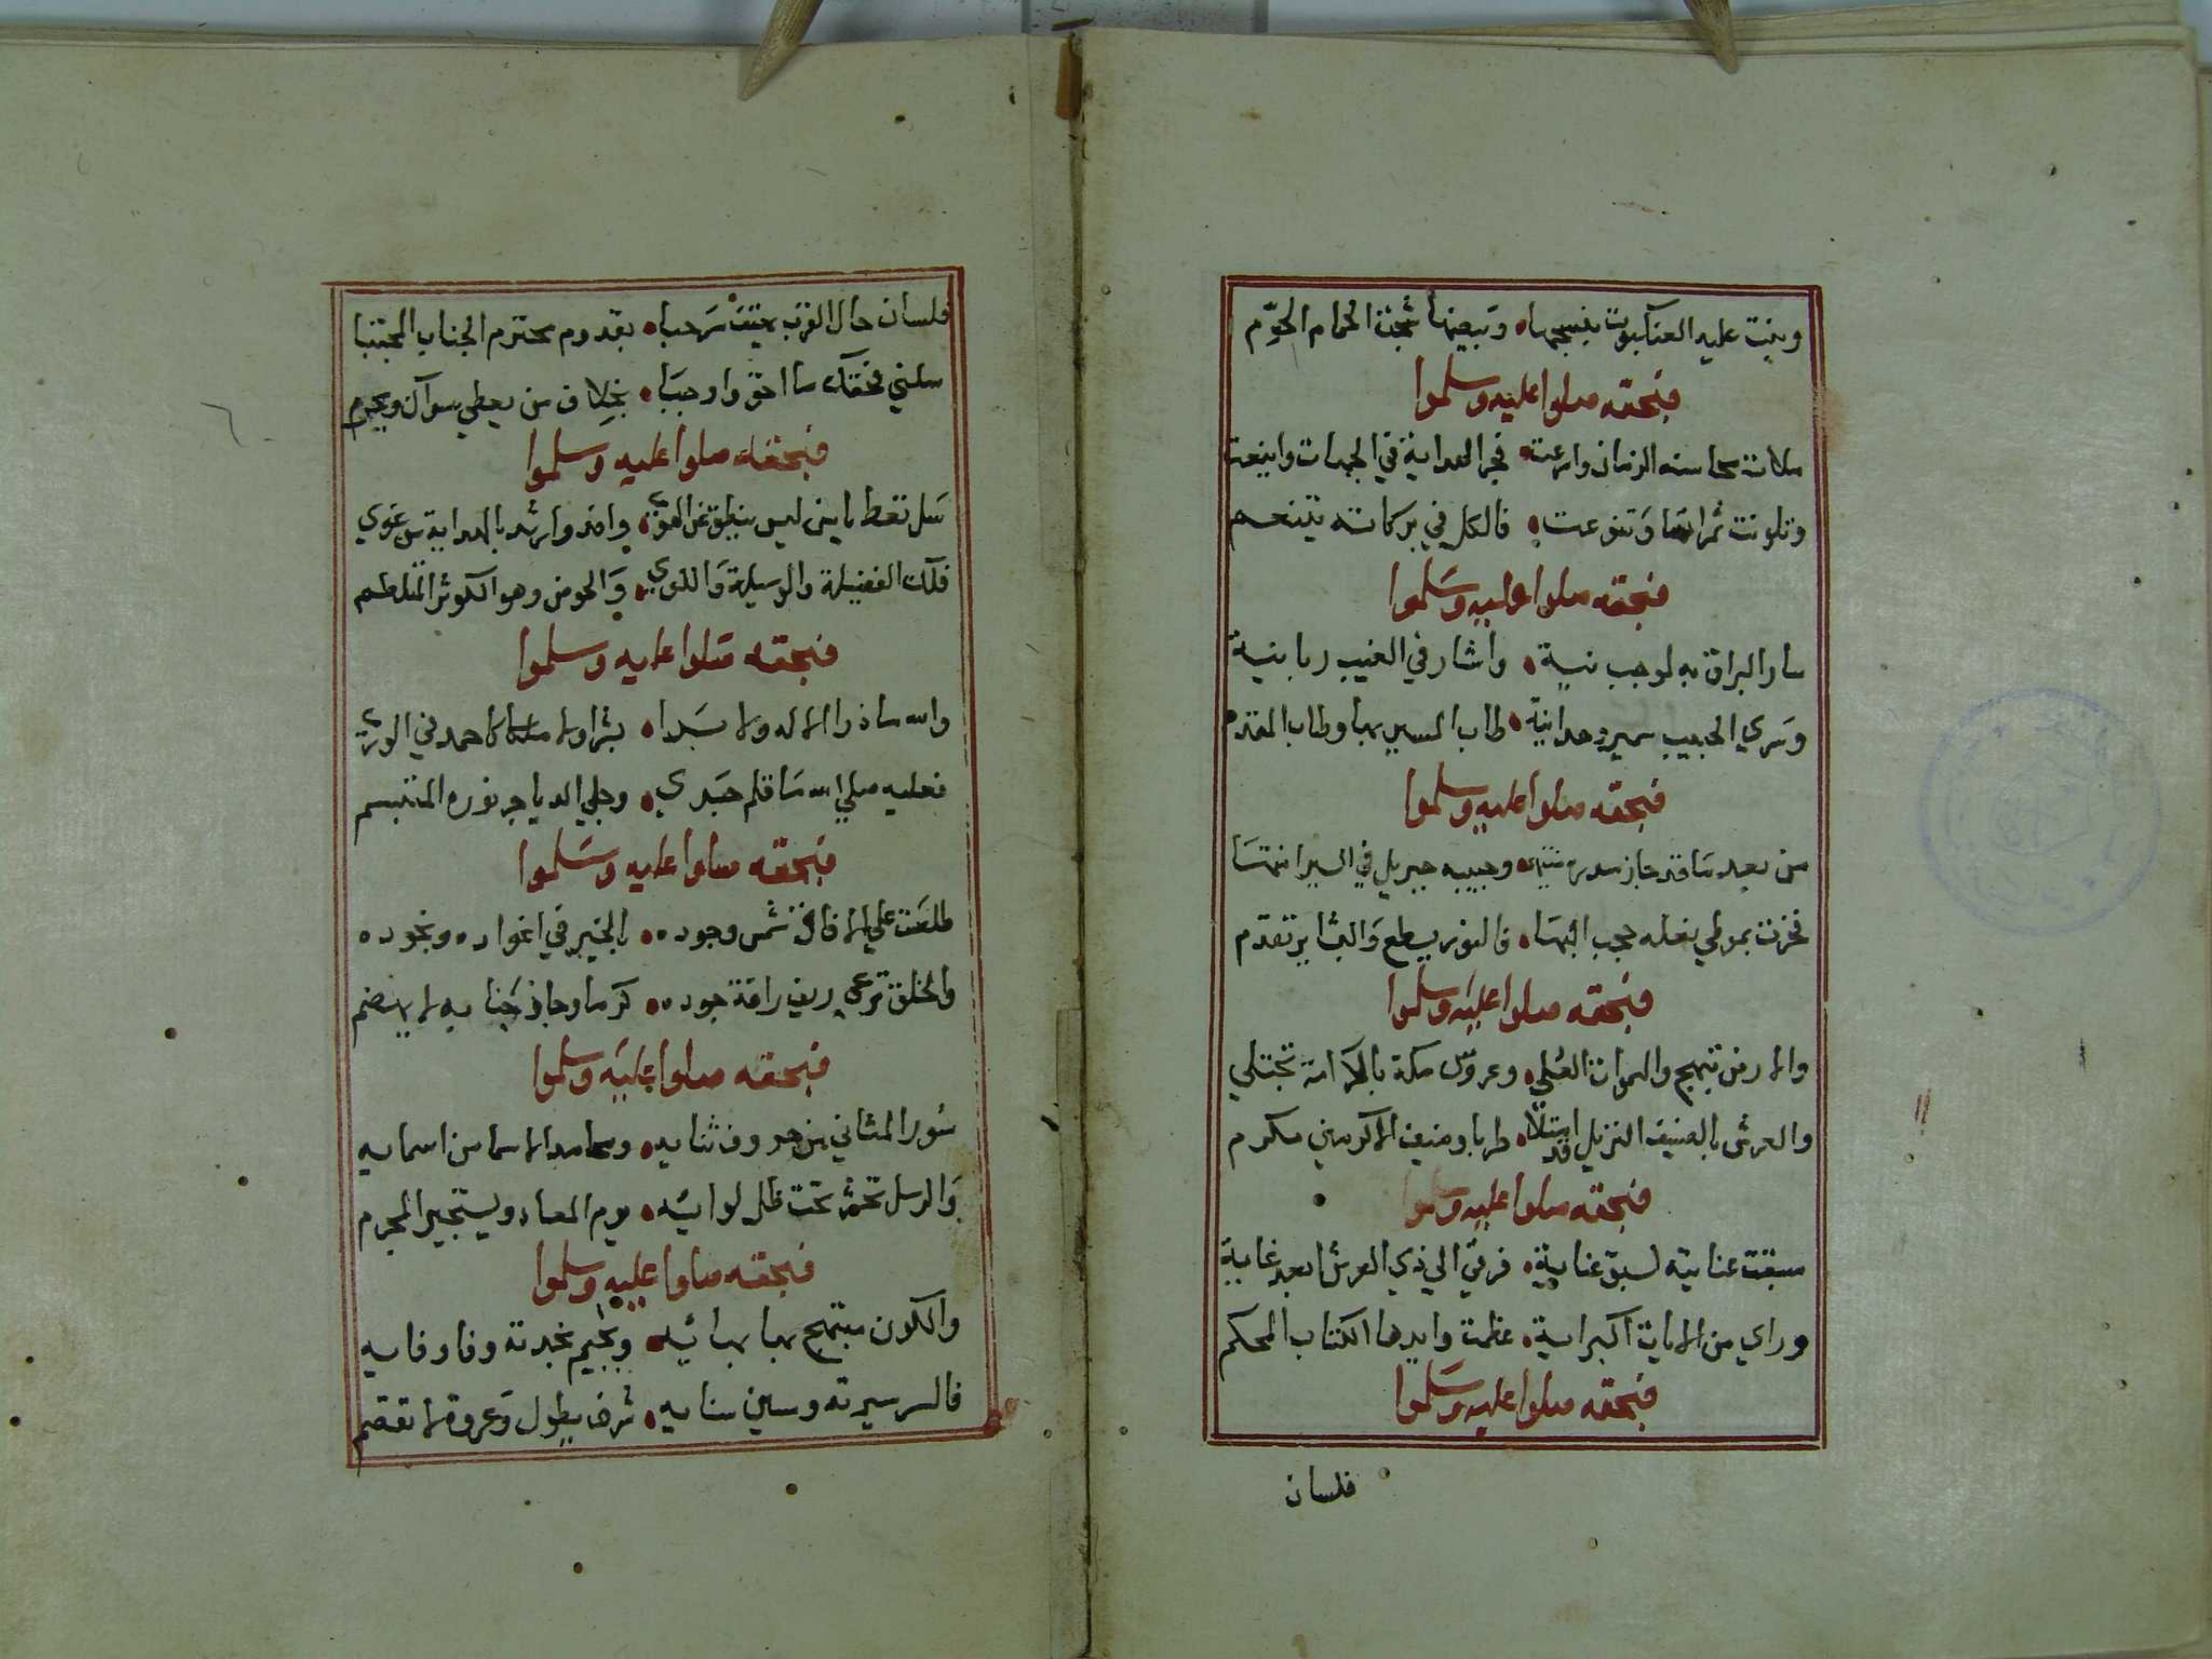 وبنت عليه العنكبوت بنسجها وببيضها شجت الحمام الحوّم
فبحقه صلوا عليه وسلموا
ملات محاسنه الزمان وابرعت فجر الهداية في الجهات واينعت
وتلونت ثمراتها وتنوعت فالكل في بركاته يتنعم
فبحقه صلوا عليه وسلموا
سار البراق به لموجب نسبة واشار في الغيب ربانية
وسري الحبيب سمير وحدانية طاب المسير بها وطاب المقدم
فبحقه صلوا عليه وسلموا
من بعد ما قد جاز سدرة وحبيبه جبريل في السير انتها
فخرت بموطي نعله حجب البها فالنور يسطع والبشاير تقدم
فبحقه صلوا عليه وسلموا
والارض تبهج والسموات العلي وعروس مكة بالكرامة تجتلي
والعرش بالضيف النزيل قد امتلا طربا وضيف الاكرمين مكرم
فبحقه صلوا عليه وسلموا
سبقت عنايته لسبق عناية فرقي الي ذي العرش ابعد غاية
وراي من الايات اكبر اية عظمت وايدها الكتاب المحكم
فبحقه صلوا عليه وسلموا
فلسان
فلسان حال القرب يهتف مرحبا بقدوم محترم الجناب المجتبا
سلني فحقك ما احق واوجبا بخلاف من يعطي سوآل ويحرم
فبحقه صلوا عليه وسلموا
سل تعط يا من ليس ينطق عن الهوي وامر وارشد بالهداية من غوي
فلك الفضيلة والوسيلة واللوي والحوض وهو الكوثر المتلطم
فبحقه صلوا عليه وسلموا
والله ما ذرا الاله ولا برا بشرا ولا ملكا كاحمد في الوري
فعليه صلي الله ما قلم جري وجلي الدياجر نوره المتبسم
فبحقه صلوا عليه وسلموا
طلعت علي الافاق شمس وجوده بالخير في اغواره ونجوده
والخلق ترعي ريف رافة جوده كرما وجار جنابه لا يهضم
فبحقه صلوا عليه وسلموا
سور المثاني من حروف ثنايه ومحامد الاسما من اسمايه
والرسل تحشر تحت ظل لوائيه يوم المعاد ويستجير المجرم
فبحقه صلوا عليه وسلموا
والكون مبتهج بها بهائيه وبجيم نجدته وفا وفايه
فالسر سيرته وسين سنايه شرف يطول وعروة لا تقصم